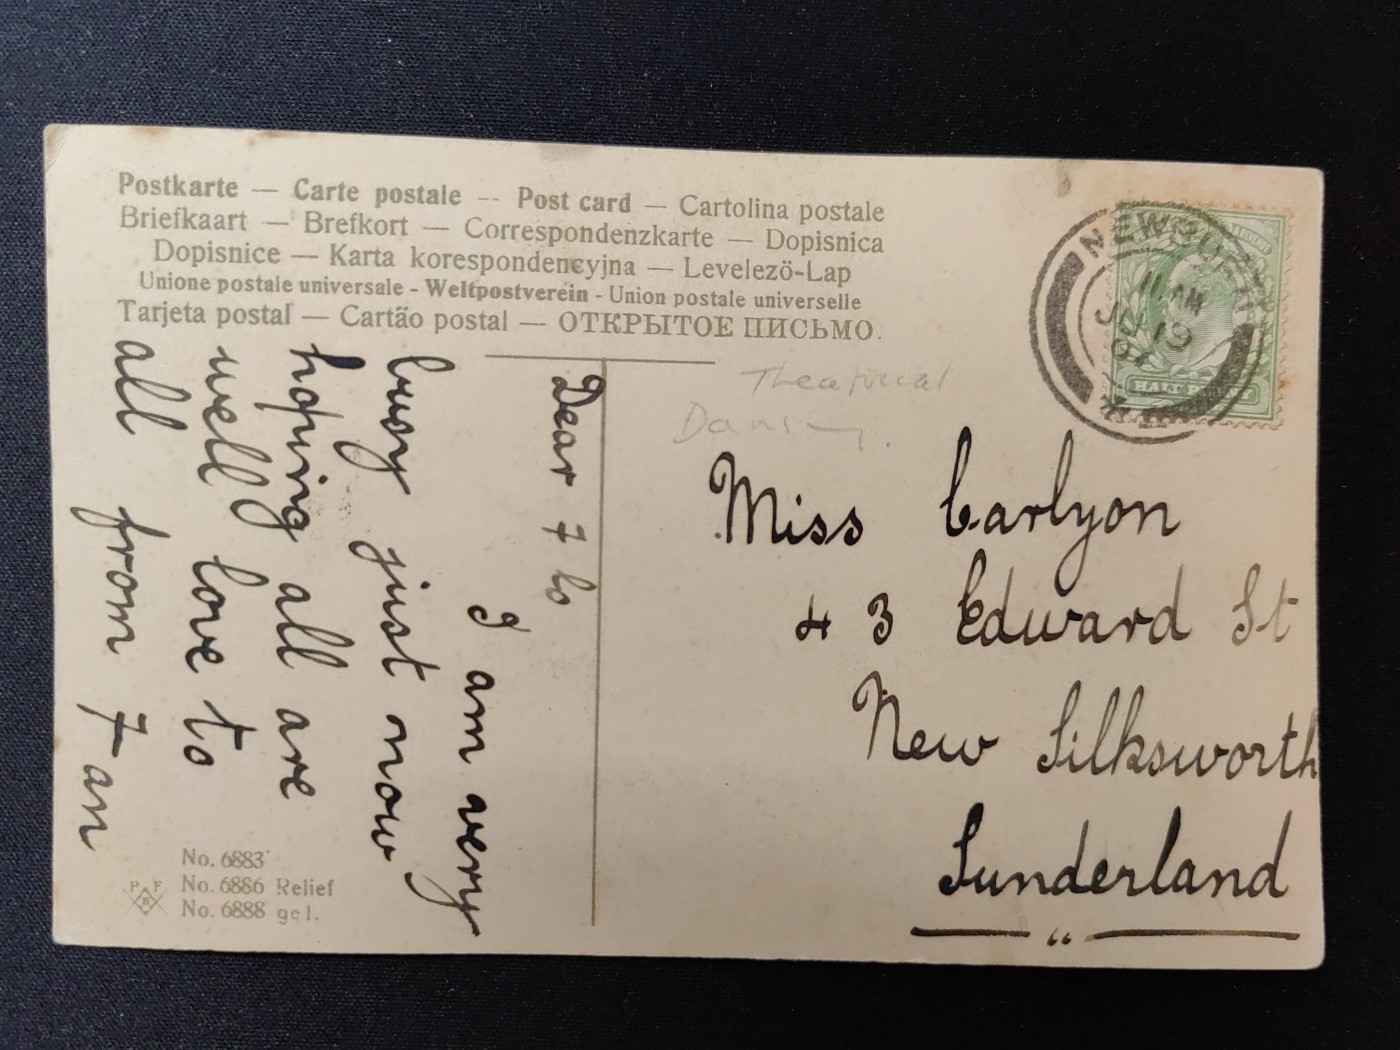 Postkarte — Carte postale -- Post card — Cartolina postale
Briefkaart — Brefkort — Correspondenzkarte — Dopisnica
Dopisnice — Karta korespondencyjna — Levelezö-Lap
Unione postale universale - Weltpostverein - Union postale universelle
Tarjeta postal — Cartão postal — ОТКРЫТОЕ ПИСЬМО.
NEWQUAY
11 AM
JU 19
HALF
Theatrical
Miss Carlyon
43 Edward St
New Silksworth
Sunderland
Dear F &
I am very
busy just now
hoping all are
well love to
all from F an
No. 6883
No. 6886 Relief
No. 6888 gel.
P F
B